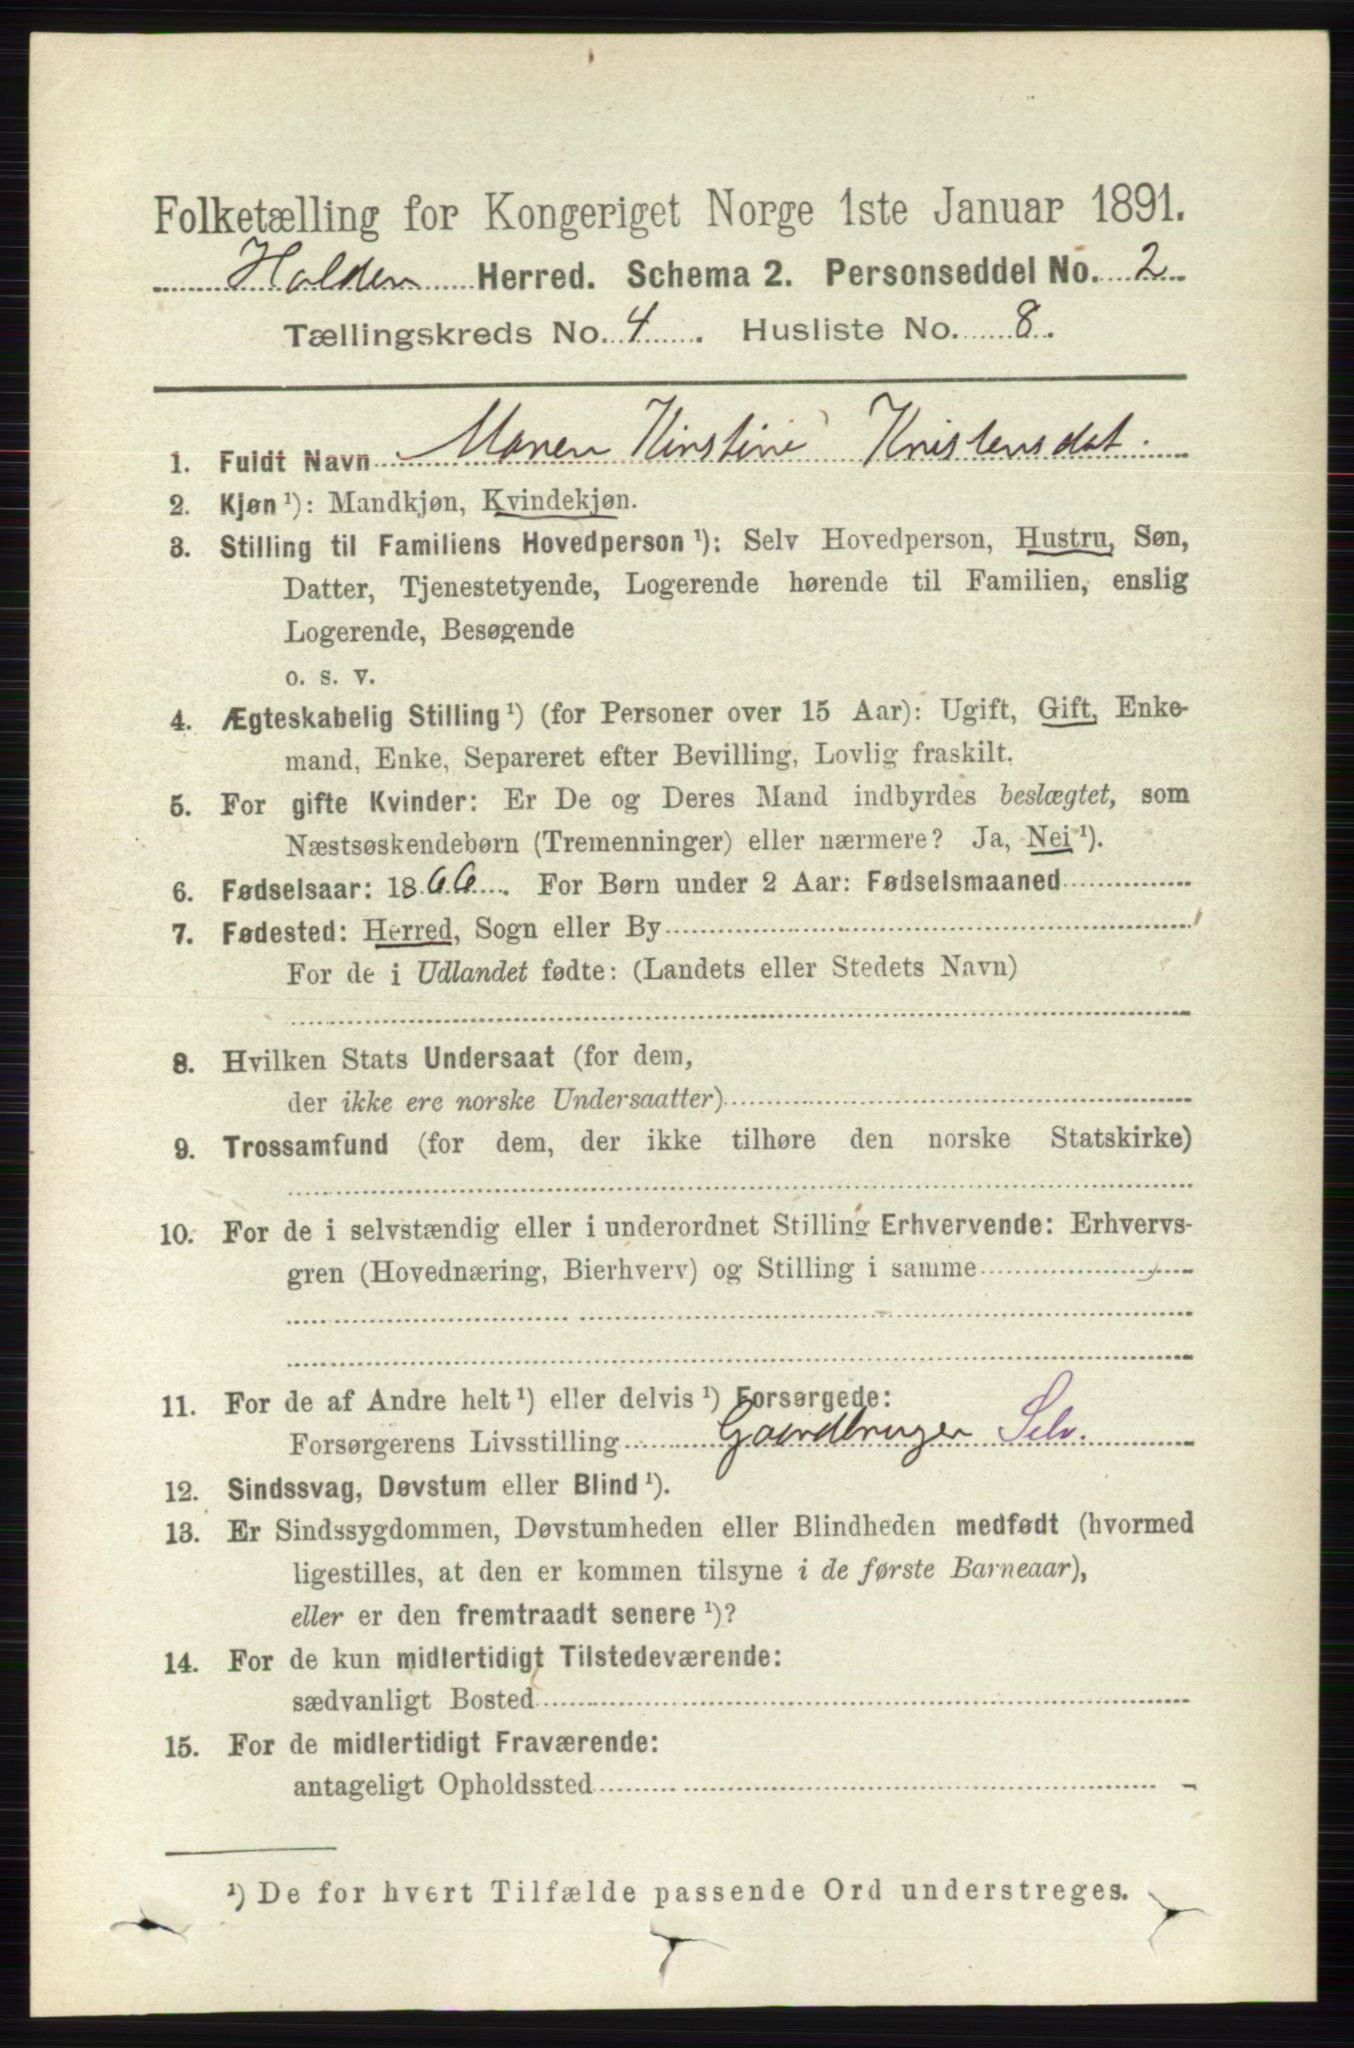 Folketælling for Kongeriget Norge 1ste Januar 1891.
Holden Herred. Schema 2. Personseddel No. 2
Tællingskreds No. 4. Husliste No. 8.
1. Fuldt Navn Maren Kirstine Kristensdat.
2. Kjøn ¹): Mandkjøn, Kvindekjøn.
3. Stilling til Familiens Hovedperson ¹): Selv Hovedperson, Hustru, Søn,
Datter, Tjenestetyende, Logerende hørende til Familien, enslig
Logerende, Besøgende
o. s. v.
4. Ægteskabelig Stilling ¹) (for Personer over 15 Aar): Ugift, Gift, Enke-
mand, Enke, Separeret efter Bevilling, Lovlig fraskilt.
5. For gifte Kvinder: Er De og Deres Mand indbyrdes beslægtet, som
Næstsøskendebørn (Tremenninger) eller nærmere? Ja, Nei ¹).
6. Fødselsaar: 1866. For Børn under 2 Aar: Fødselsmaaned
7. Fødested: Herred, Sogn eller By
For de i Udlandet fødte: (Landets eller Stedets Navn)
8. Hvilken Stats Undersaat (for dem,
der ikke ere norske Undersaatter)
9. Trossamfund (for dem, der ikke tilhøre den norske Statskirke)
10. For de i selvstændig eller i underordnet Stilling Erhvervende: Erhvervs-
gren (Hovednæring, Bierhverv) og Stilling i samme
11. For de af Andre helt ¹) eller delvis ¹) Forsørgede:
Forsørgerens Livsstilling Gaardbruger Selv.
12. Sindssvag, Døvstum eller Blind ¹).
13. Er Sindssygdommen, Døvstumheden eller Blindheden medfødt (hvormed
ligestilles, at den er kommen tilsyne i de første Barneaar),
eller er den fremtraadt senere ¹)?
14. For de kun midlertidigt Tilstedeværende:
sædvanligt Bosted
15. For de midlertidigt Fraværende:
antageligt Opholdssted
¹) De for hvert Tilfælde passende Ord understreges.